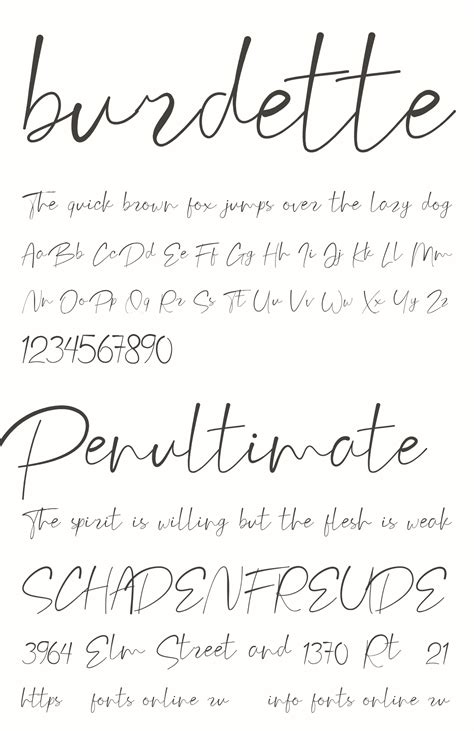 burdette
The quick brown fox jumps over the lazy dog
AaBb CcDd Ee Ff Gg Hh Ii Jj Kk Ll Mm
Nn OoPp Qq Rr Ss Tt Uu Vv Ww Xx Yy Zz
1234567890
Penultimate
The spirit is willing but the flesh is weak
SCHADENFREUDE
3964 Elm Street and 1370 Rt 21
https fonts online ru info fonts online ru